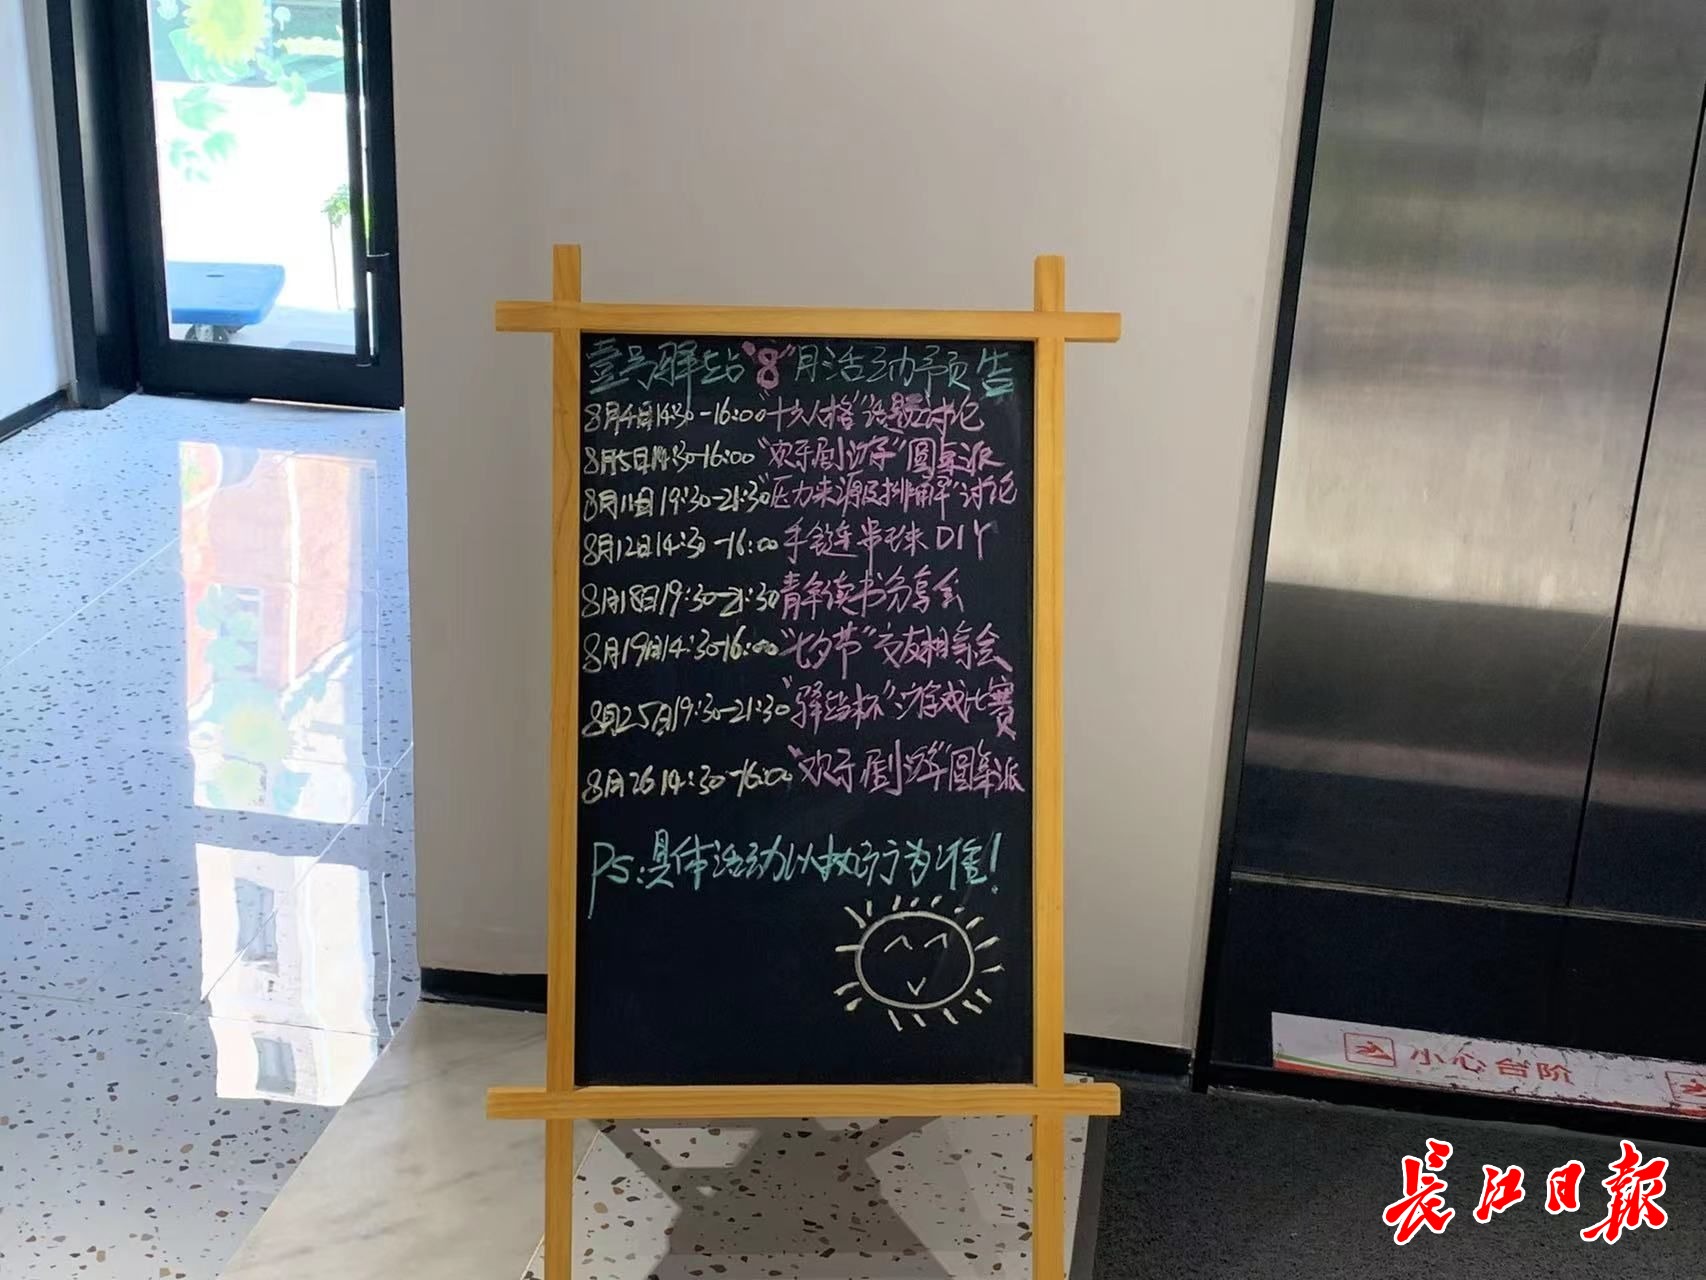 壹号驿站"8"月活动预告
8月4日14:30-16:00"十六人格"话题讨论
8月5日14:30-16:00"欢乐剧游"圆桌派
8月11日19:30-21:30"压力来源及排解"讨论
8月12日14:30-16:00手链串珠DIY
8月18日19:30-21:30青年读书分享会
8月19日14:30-16:00"七夕节"交友相亲会
8月25日19:30-21:30"驿站杯"游戏比赛
8月26 14:30-16:00"欢乐剧游"圆桌派
Ps:具体活动以执行为准!
小心台阶
长江日报